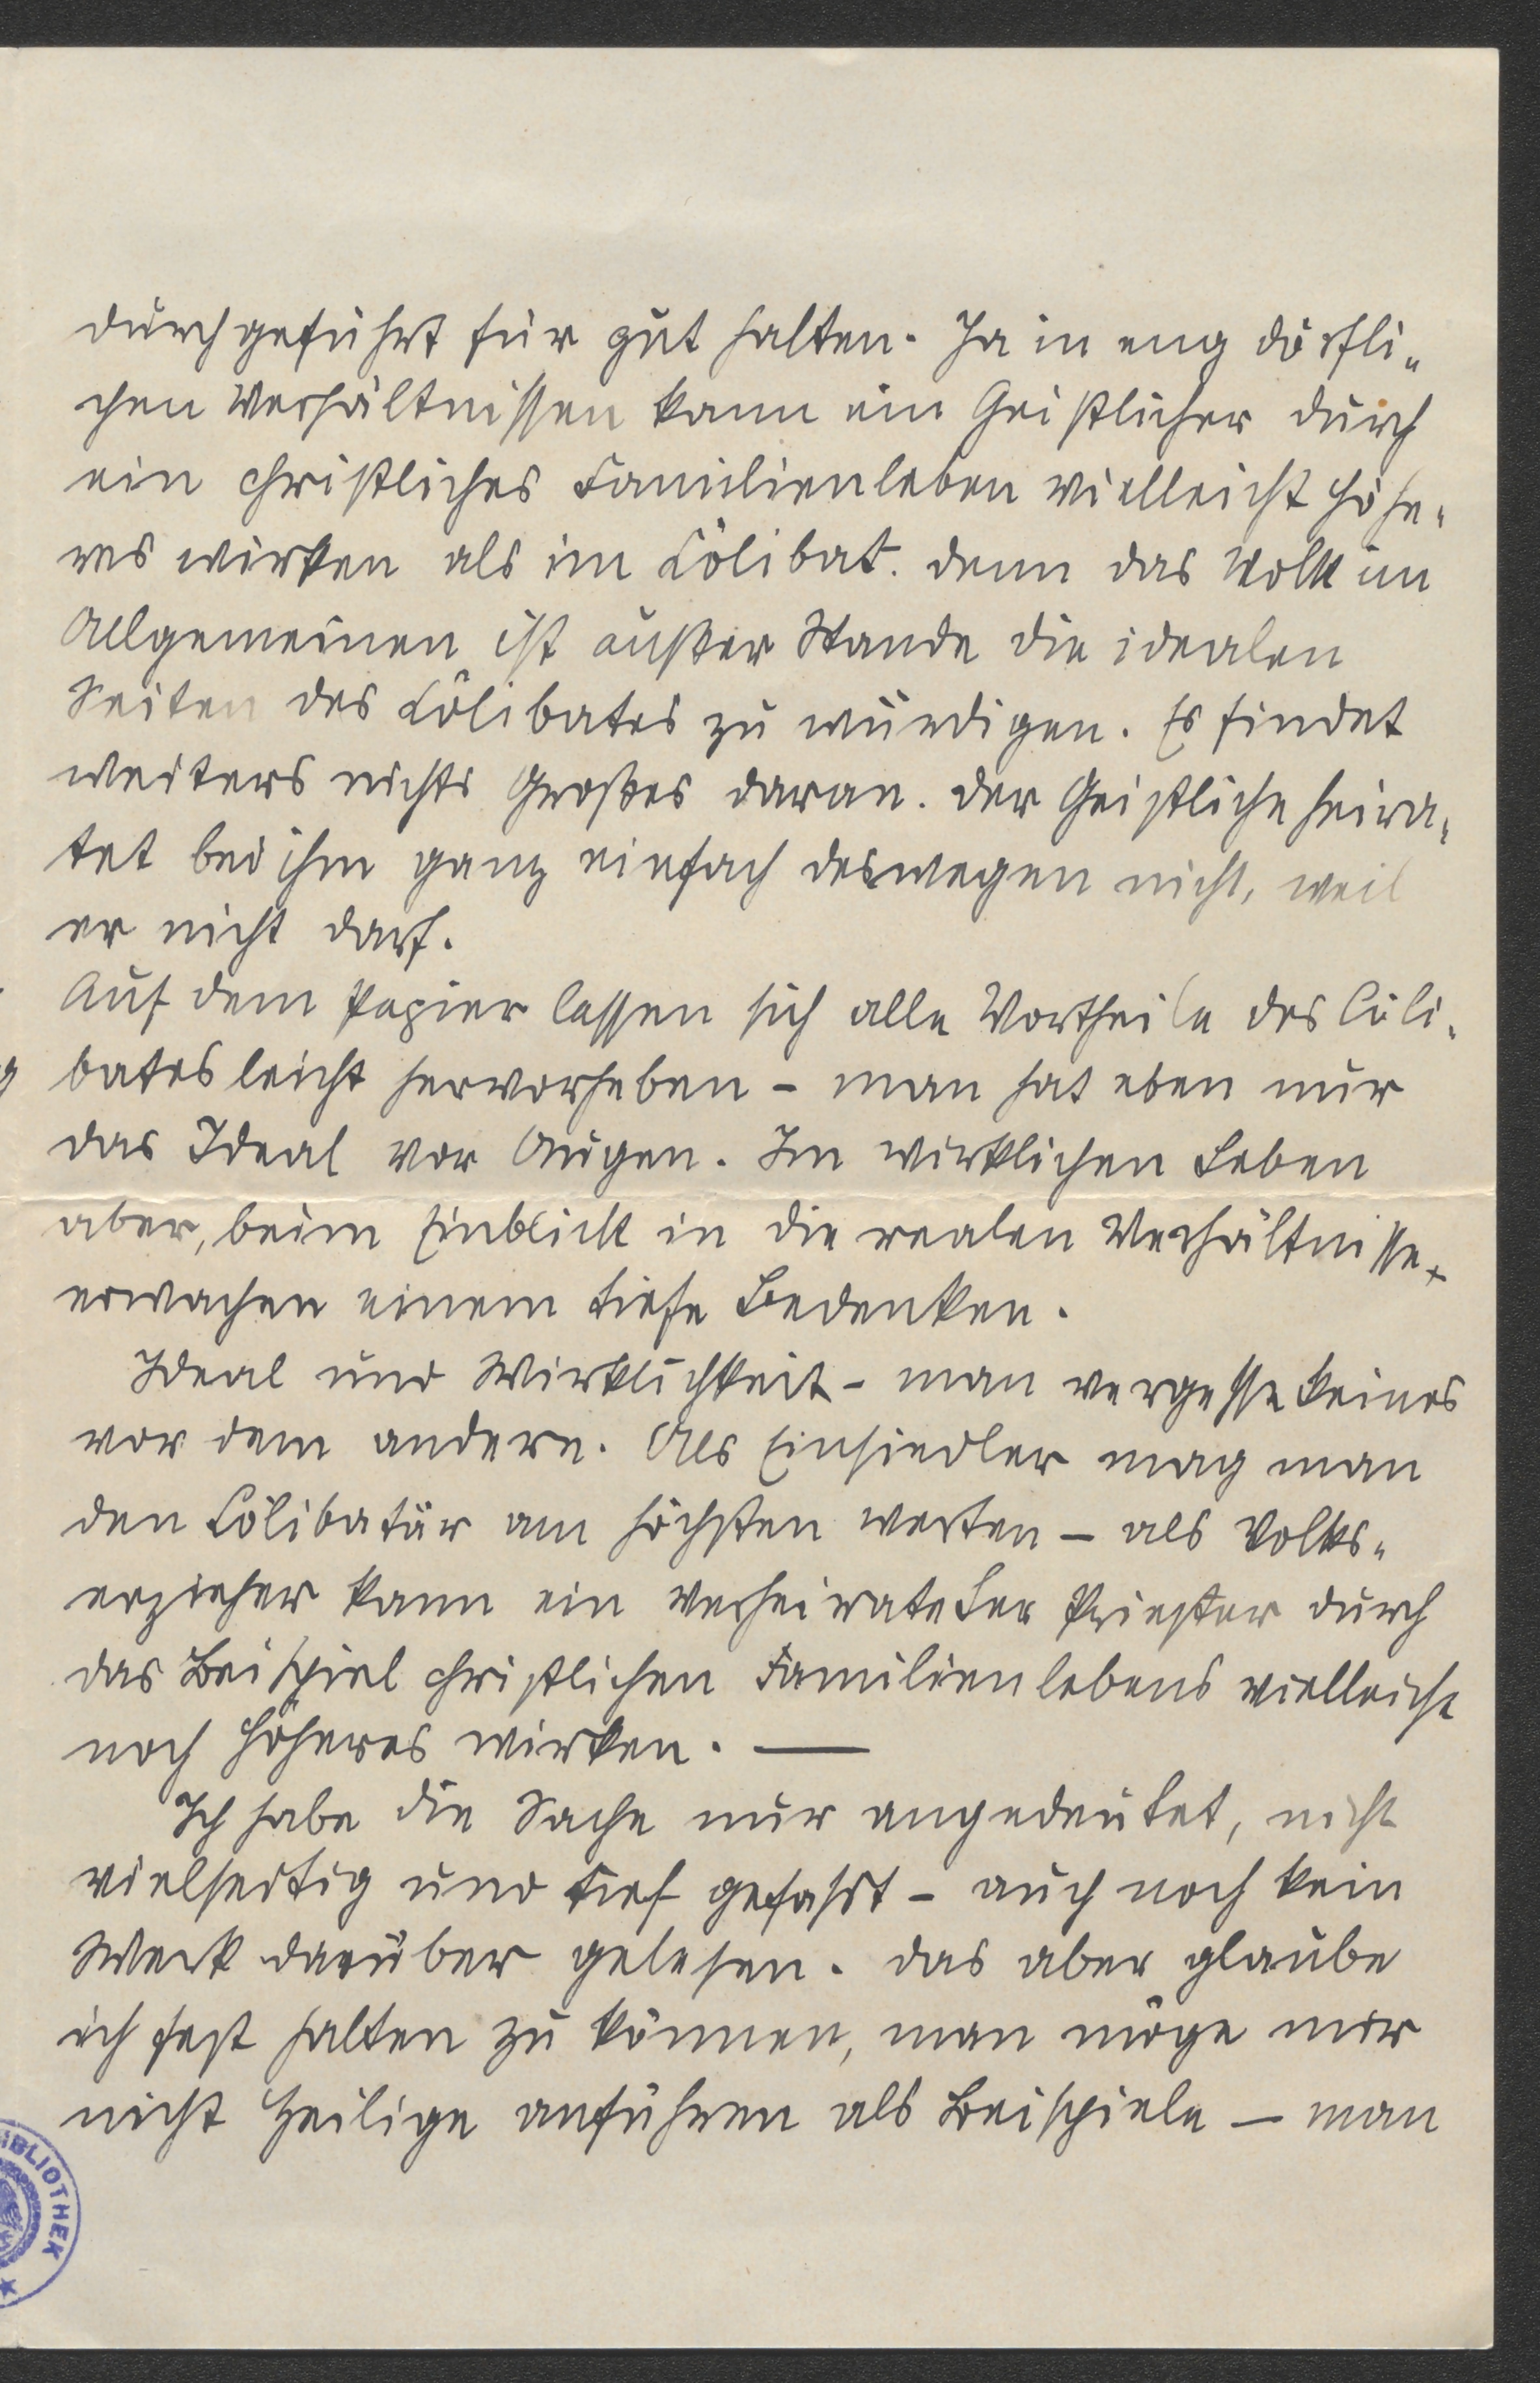 durchgeführt für gut halten. Ja in eng dörfli„
chen Verhältnissen kann ein Geistlicher durch
ein christliches Familienleben vielleicht höhe„
res wirken als im Cölibat. denn das Volk im
Allgemeinen ist außer Stande die idealen
Seiten des Cölibates zu würdigen. Es findet
weiters nichts Großes daran. der Geistliche heira„
tet bei ihm ganz einfach deswegen nicht, weil
er nicht darf.
Auf dem Papier lassen sich alle Vortheile des Cöli„
bates leicht hervorheben – man hat eben nur
das Ideal vor Augen. Im wirklichen Leben
aber, beim Einblick in die realen Verhältnisse,
erwachen einem tiefe Bedenken.
Ideal und Wirklichkeit – man vergesse keines
vor dem andern. Als Einsiedler mag man
den Cölibatär am höchsten werten – als Volks„
erzieher kann ein verheirateter Priester durch
das Beispiel christlichen Familienlebens vielleicht
noch höheres wirken. —
Ich habe die Sache nur angedeutet, nicht
vielseitig und tief gefasst – auch noch kein
Werk darüber gelesen. das aber glaube
ich fest halten zu können, man möge mir
nicht Heilige anführen als Beispiele – man
BIBLIOTHEK